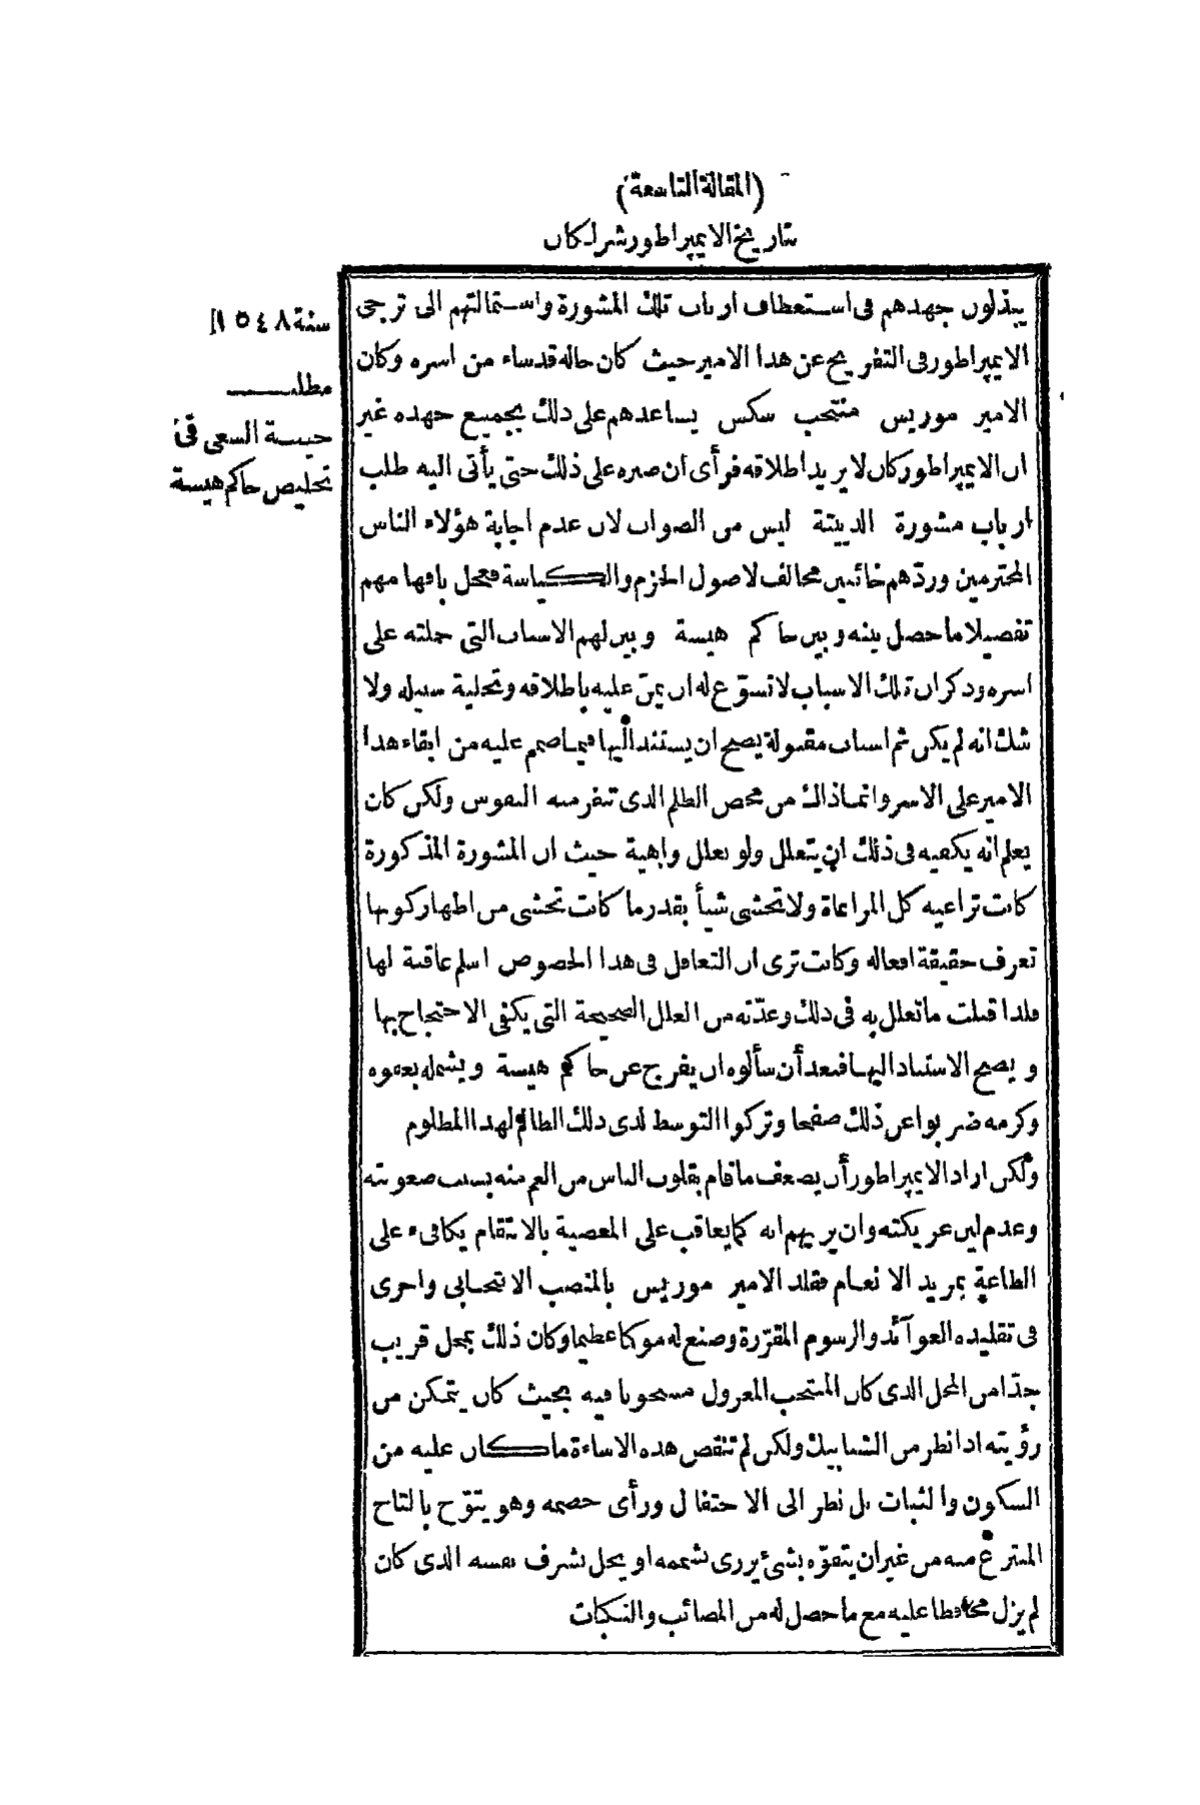 (المقالة التاسعة)
بتاريخ الايمپراطور شرلكان
سنة ١٥٤٨
مطلب
خيبة السعى فى
تخليص حاكم هيسة
يبذلون جهدهم فى استعطاف ارباب تلك المشورة واستمالتهم الى ترجى
الايمپراطور فى التفريج عن هذا الامير حيث كان حاله قد ساء من اسره وكان
الامير موريس منتخب سكس يساعدهم على ذلك بجميع جهده غير
ان الايمپراطور كان لا يريد اطلاقه فرأى ان صبره على ذلك حتى يأتى اليه طلب
ارباب مشورة الدييتة ليس من الصواب لان عدم اجابة هؤلاء الناس
المحترمين وردّهم خائبين مخالف لاصول الحزم والكياسة فعجل بافهامهم
تفصيلا ما حصل بينه وبين حاكم هيسة وبين لهم الاسباب التى حملته على
اسره وذكر ان تلك الاسباب لا تسوّغ له ان يمنّ عليه باطلاقه وتخلية سبيله ولا
شك انه لم يكن ثم اسباب مقبولة يصح ان يستند اليها فيما صمم عليه من ابقاء هذا
الامير على الاسر وانما ذاك من محض الظلم الذى تنفر منه النفوس ولكن كان
يعلم انه يكفيه فى ذلك ان يتعلل ولو بعلل واهية حيث ان المشورة المذكورة
كانت تراعيه كل المراعاة ولا تخشى شيأ بقدر ما كانت تخشى من اظهار كونها
تعرف حقيقة افعاله وكانت ترى ان التغافل فى هذا الخصوص اسلم عاقبة لها
فلذا قبلت ما تعلل به فى ذلك وعدّته من العلل الصحيحة التى يكفى الاحتجاج بها
ويصح الاستناد اليها فبعد أن سألوه ان يفرج عن حاكم هيسة ويشمله بعفوه
وكرمه ضربوا عن ذلك صفحا وتركوا التوسط لدى ذلك الظالم لهذا المظلوم
ولكن اراد الايمپراطور أن يضعف ما قام بقلوب الناس من الغم منه بسبب صعوبته
وعدم لين عريكته وان يريهم انه كما يعاقب على المعصية بالانتقام يكافىء على
الطاعة بمزيد الانعام فقلد الامير موريس بالمنصب الانتخابى واجرى
فى تقليده العوآئد والرسوم المقرّرة وصنع له موكبا عظيما وكان ذلك بمحل قريب
جدّا من المحل الذى كان المنتخب المعزول مسجونا فيه بحيث كان يتمكن من
رؤيته اذا نظر من الشبابيك ولكن لم تنقص هذه الاساءة ما كان عليه من
السكون والثبات بل نظر الى الاحتفال ورأى خصمه وهو يتوّج بالتاج
المنتزع منه من غير ان يتفوّه بشئ يزرى بشممه او يخل بشرف نفسه الذى كان
لم يزل محافظا عليه مع ما حصل له من المصائب والنكبات